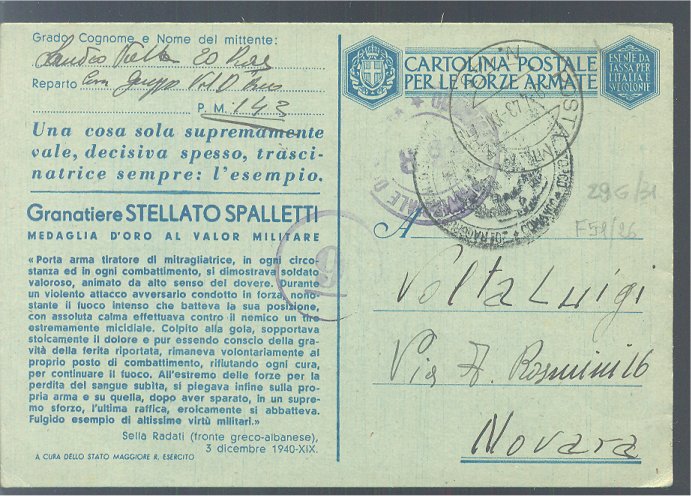 Grado Cognome e Nome del mittente:
Sandro Volta 20 Regg
Reparto Com. Gruppo Vol D'
P. M. 143
Una cosa sola supremamente
vale, decisiva spesso, trasci-
natrice sempre: l'esempio.
Granatiere STELLATO SPALLETTI
MEDAGLIA D'ORO AL VALOR MILITARE
«Porta arma tiratore di mitragliatrice, in ogni circo-
stanza ed in ogni combattimento, si dimostrava soldato
valoroso, animato da alto senso del dovere. Durante
un violento attacco avversario condotto in forza, nono-
stante il fuoco intenso che batteva la sua posizione,
con assoluta calma effettuava contro il nemico un tiro
estremamente micidiale. Colpito alla gola, sopportava
stoicamente il dolore e pur essendo conscio della gra-
vità della ferita riportata, rimaneva volontariamente al
proprio posto di combattimento, rifiutando ogni cura,
per continuare il fuoco. All'estremo delle forze per la
perdita del sangue subìta, si piegava infine sulla pro-
pria arma e su quella, dopo aver sparato, in un su-
premo sforzo, l'ultima raffica, eroicamente si abbatteva.
Fulgido esempio di altissime virtù militari.»
Sella Radati (fronte greco-albanese),
3 dicembre 1940-XIX.
A CURA DELLO STATO MAGGIORE R. ESERCITO
CARTOLINA POSTALE
PER LE FORZE ARMATE
ESENTE DA
TASSA PER
L'ITALIA E
SUE COLONIE
POSTA MIL
9
29G/31
F51/26
A
Volta Luigi
Via A. Rosmini 16
Novara